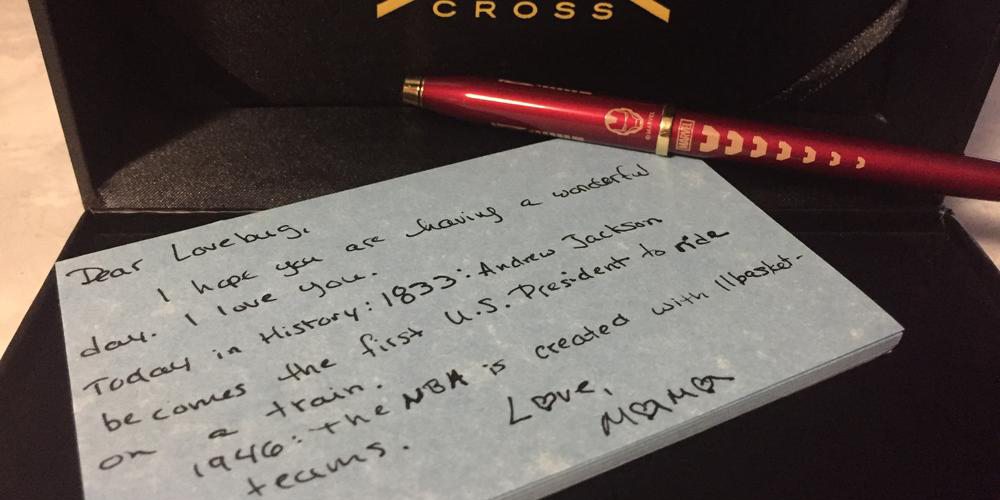 CROSS
MARVEL
© MARVEL
Dear Lovebug,
I hope you are having a wonderful
day. I love you.
Today in History: 1833: Andrew Jackson
becomes the first U.S. President to ride
on a train.
1946: the NBA is created with 11 basket-
teams.
Love,
MaMa